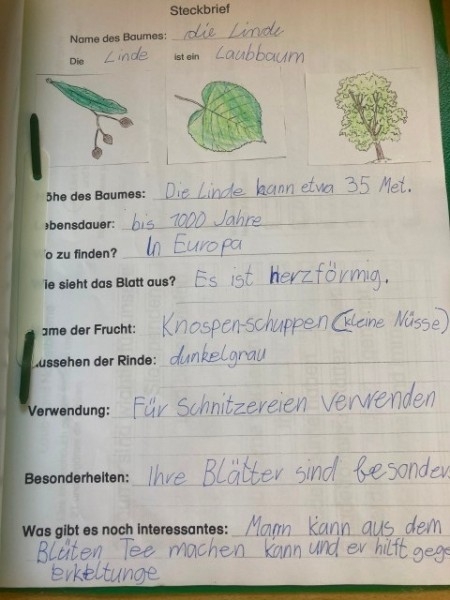 Steckbrief
Name des Baumes: die Linde
Die Linde ist ein Laubbaum
öhe des Baumes: Die Linde kann etva 35 Met.
ebensdauer: bis 1000 Jahre
o zu finden? In Europa
ie sieht das Blatt aus? Es ist herzförmig.
ame der Frucht: Knospen-schuppen (kleine Nüsse)
ussehen der Rinde: dunkelgrau
Verwendung: Für Schnitzereien verwenden
Besonderheiten: Ihre Blätter sind besonders
Was gibt es noch interessantes: Mann kann aus dem
Blüten Tee machen kann und er hilft gege
erkeltunge